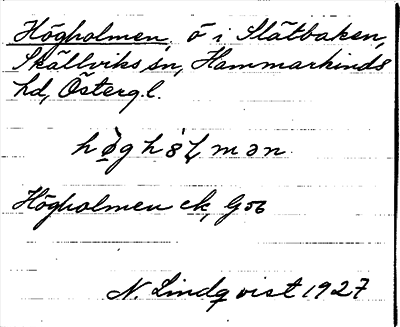 Högholmen, ö i Slätbaken,
Skällviks sn, Hammarkinds
hd, Östergl.
Högholmen ek, G 56
N. Lindqvist 1927